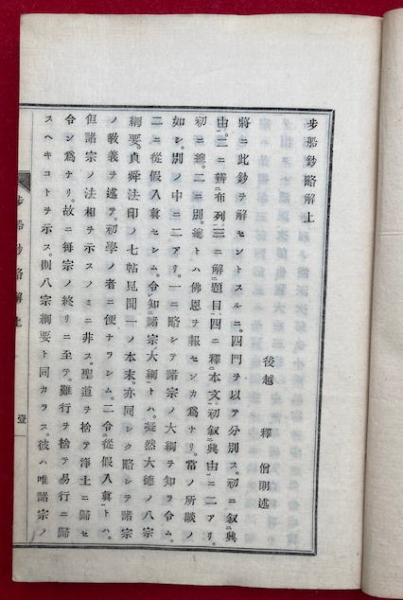 步船鈔略解上
後越 釋僧明述
將ニ此鈔ヲ解セントスルニ。四門ヲ以テ分別ス。初ニ叙興
由。二ニ辨布列三ニ解題目四ニ釋本文初叙興由ニ二アリ。
初ニ總。二ニ別。總トハ佛恩ヲ報センカ為ナリ。常ノ所談ノ
如シ。別ノ中ニ二アリ。一ニ略シテ諸宗ノ大綱ヲ知ラ令ム。
二ニ從假入眞セシム。令知諸宗大綱トハ。凝然大德ノ八宗
綱要。貞舜法印ノ七帖見聞一ノ本末。亦同シク略シテ諸宗
ノ敎義ヲ述テ。初學ノ者ニ便ナラシム。二ニ令從假入眞トハ。
但諸宗ノ法相ヲ示スノミニ非ス。聖道ヲ捨テ淨土ニ歸セ
令ン為ナリ。故ニ每宗ノ終リニ至テ。難行ヲ捨テ易行ニ歸
スヘキコトヲ示ス。則八宗綱要ト同カラス。彼ハ唯諸宗ノ
步船鈔略解上
壹